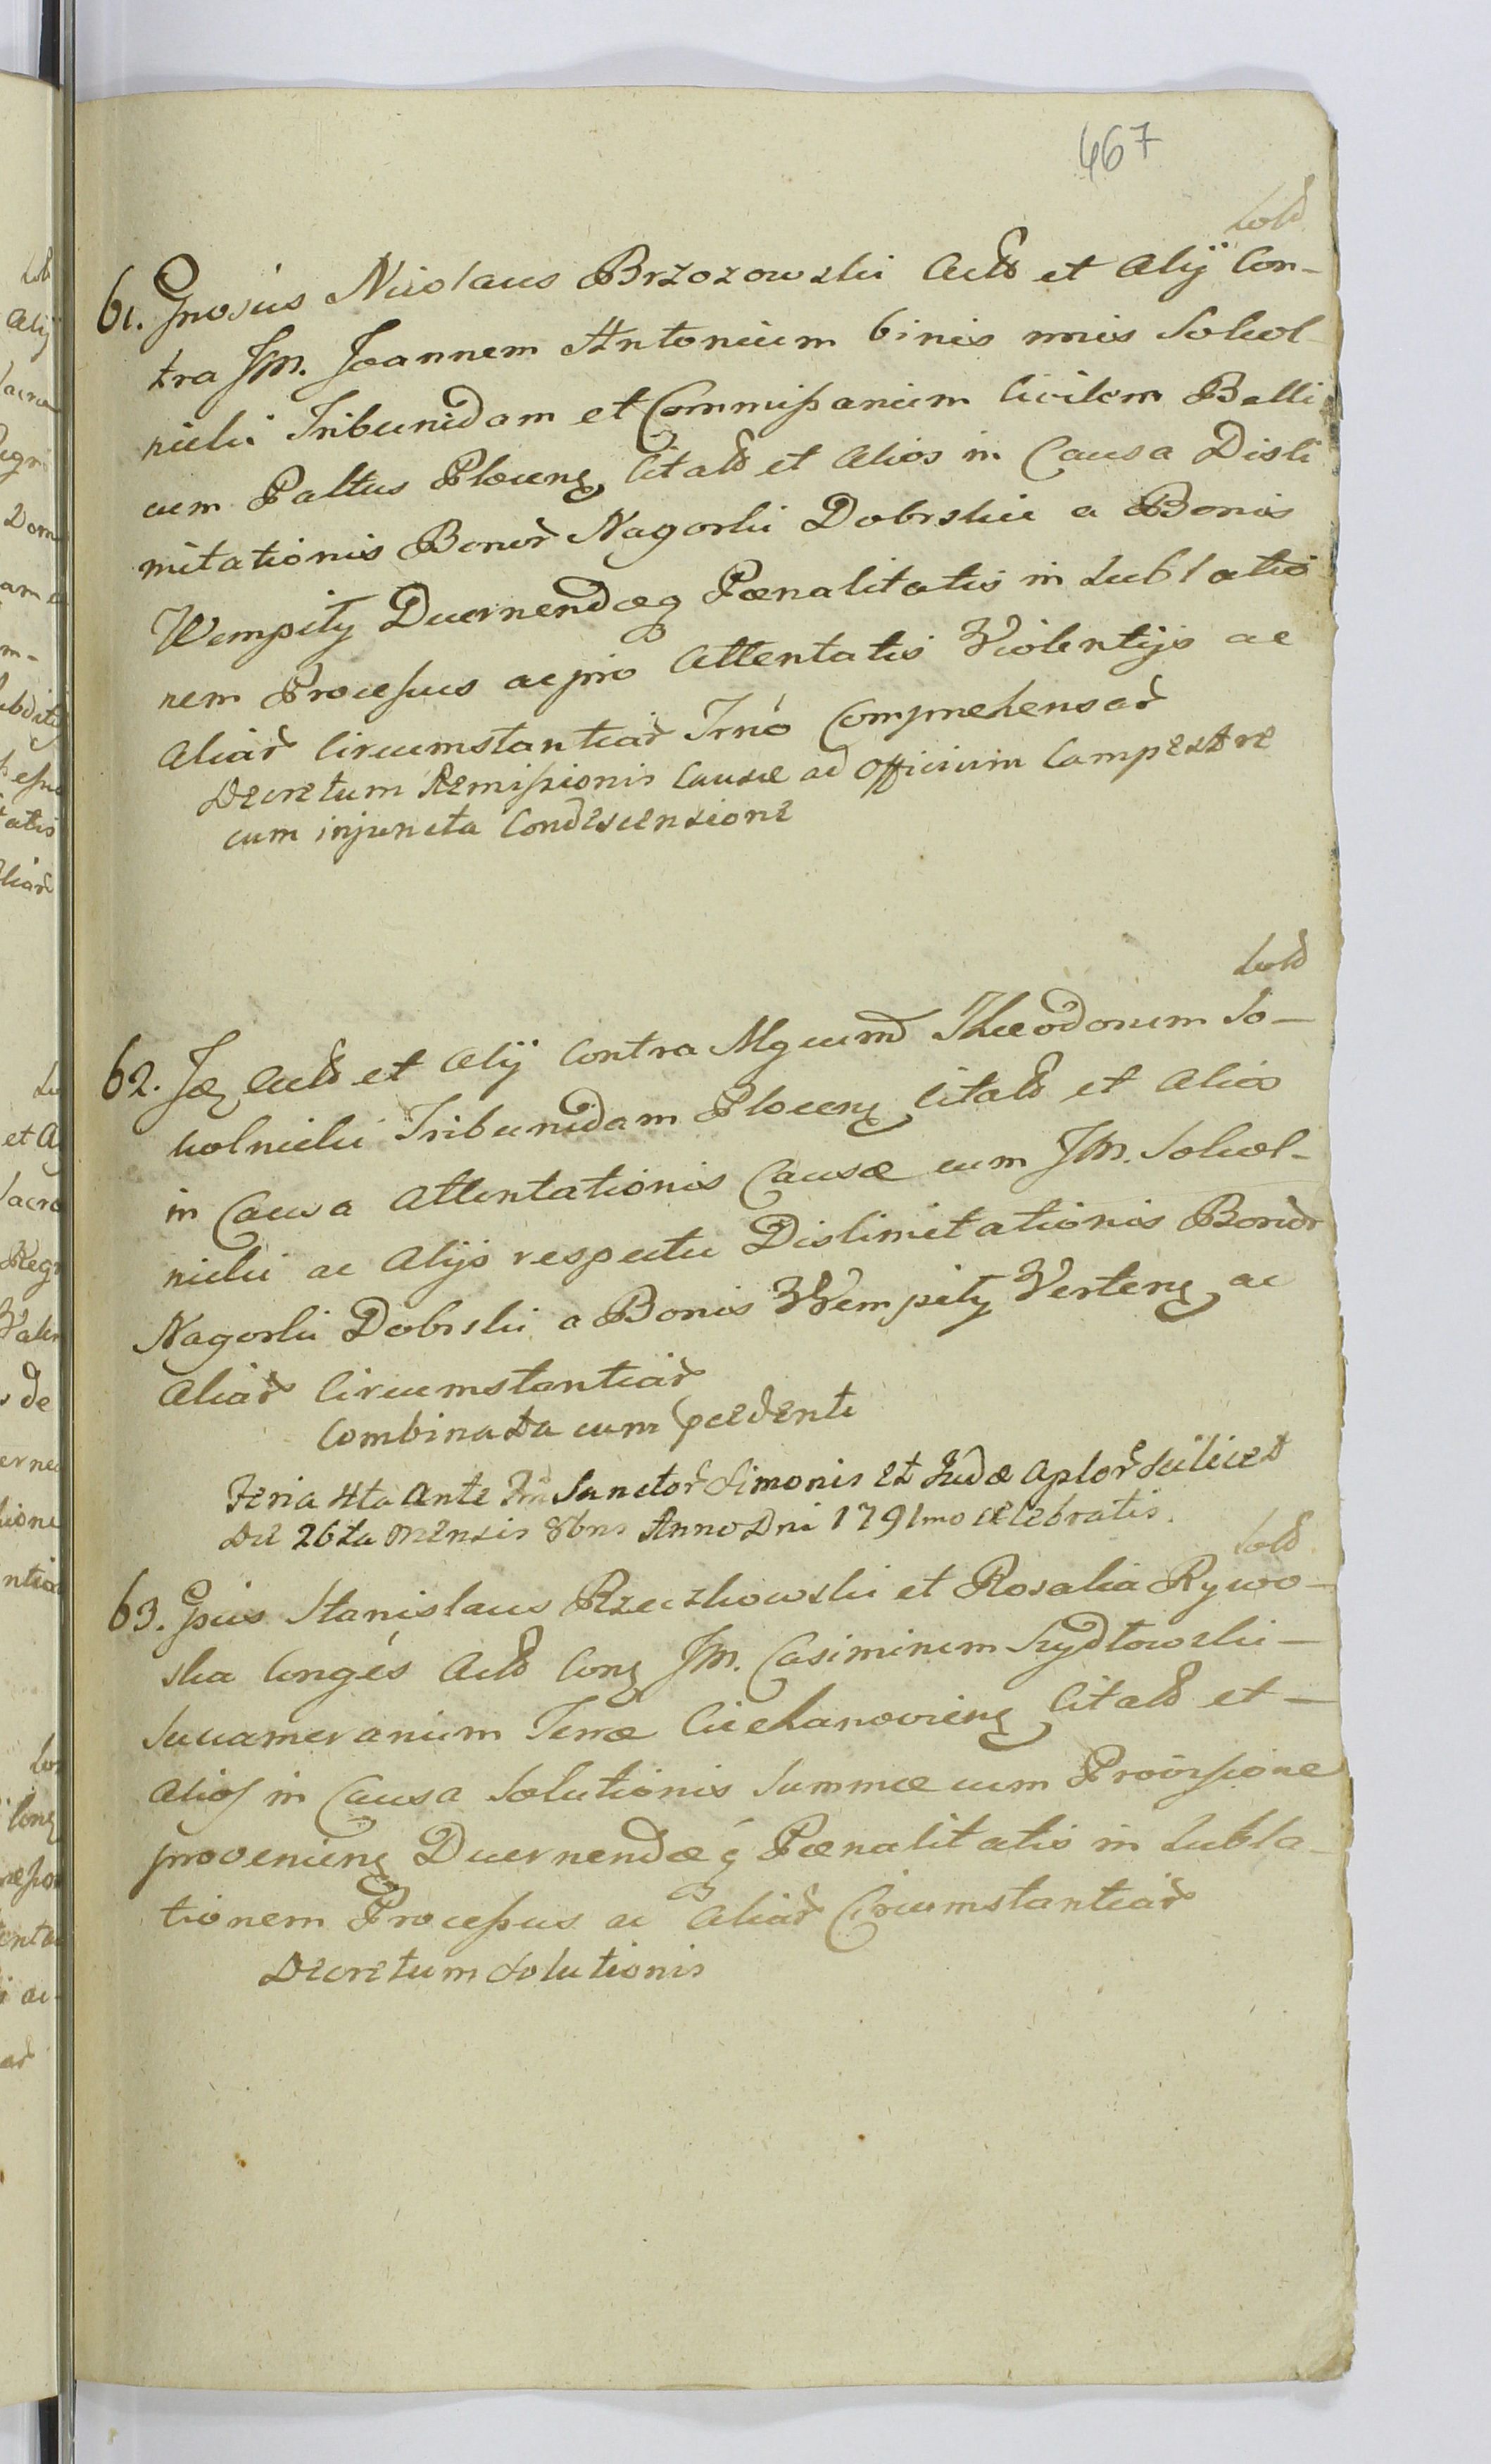 467
Sold
61. Gnosus Nicolaus Brzozowski Actd et Alij Con-
tra Jm. Joannem Antonium binis nnis Sokol-
nicki Tribunidam et Commissarium Civilem Belli
cum Paltus Plocens Citatd et Alios in Causa Disli
mitationis Bonor Nagorki Dobrskie a Bonis
Wempiły Decernendæq Pœnalitatis in Sublatio
nem Processus ac pro Attentatis Violentijs ac
Aliar Circumstantiar Trno Comprehensar
Decretum Remissionis Causæ ad Officium Campestre
cum injuncta Condescensione
Sold
62. Je Actd et Alij Contra Mgcum Theodorum So-
kolnicki Tribunidam Plocens Citatd et Alios
in Causa Attentationis Causæ cum Jm. Sokol-
nicki ac Alijs respectu Dislimitationis Bonor
Nagorki Dobrski a Bonis Wempiły Vertens ac
Aliar Circumstantiar
Combinata cum pcedenti
Feria 4ta Ante Sanctor Simonis et Judæ Aplor Scilicet
Die 26ta Mensis 8bris Anno Dni 1791mo celebratis.
Sold
63. Gsus Stanislaus Rzeczkowski et Rosalia Rywo-
ska Conges Actd Cons Jm. Casimirum Szydłowski
Succamerarium Terræ Ciechanoviens Citatd et
Alios in Causa Solutionis Summæ cum Provisione
proveniens Decernendæq Pœnalitatis in Subla-
tionem Processus ac Aliar Circumstantiar
Decretum Solutionis